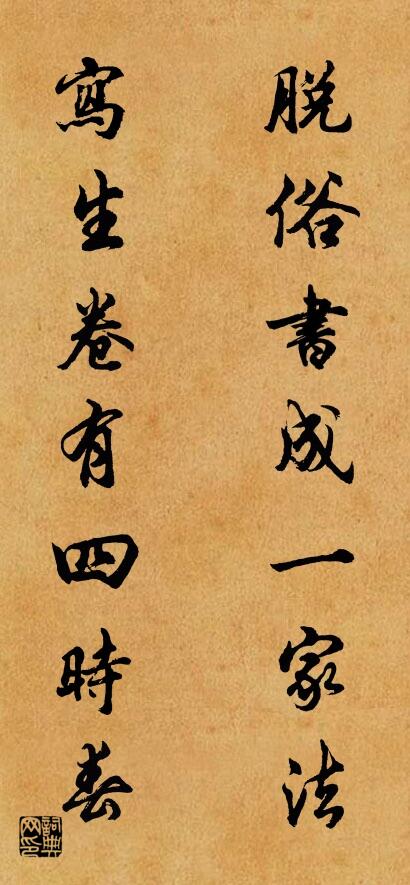 脱俗書成一家法
寫生卷有四時春
詞典網印